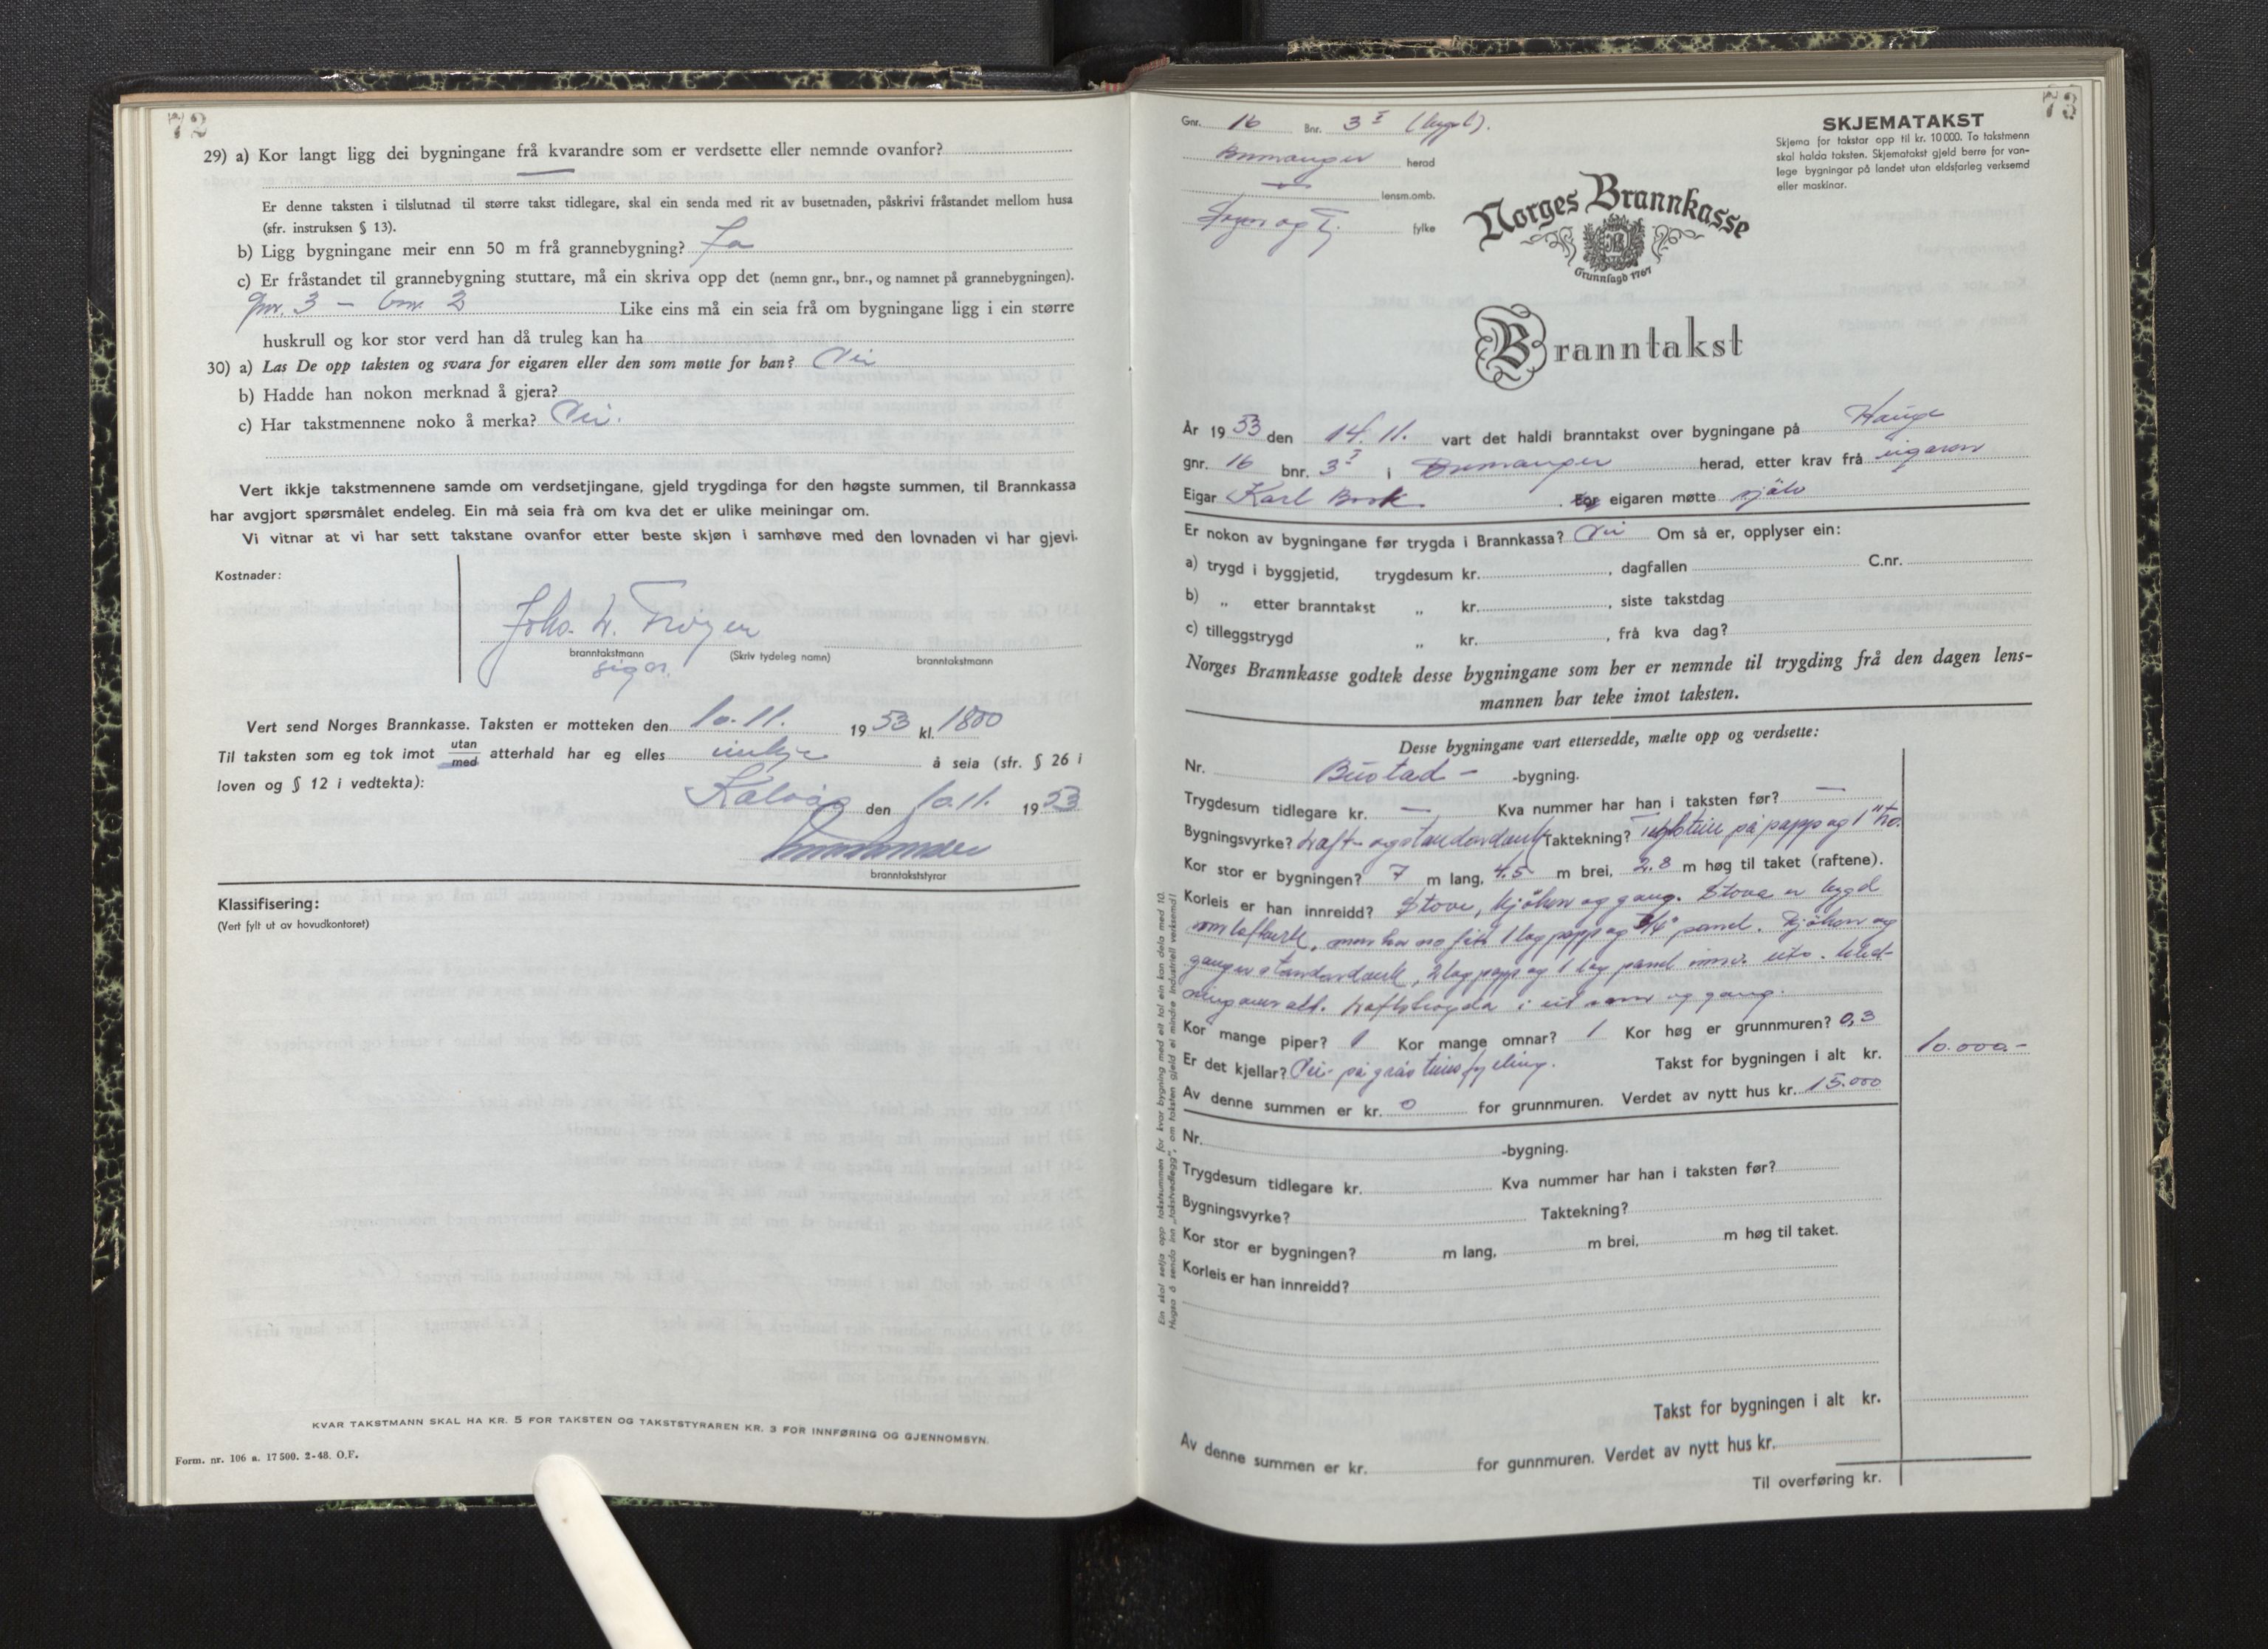 72
29) a) Kor langt ligg dei bygningane frå kvarandre som er verdsette eller nemnde ovanfor?
Er denne taksten i tilslutnad til større takst tidlegare, skal ein senda med rit av busetnaden, påskrivi fråstandet mellom husa
(sfr. instruksen § 13).
b) Ligg bygningane meir enn 50 m frå grannebygning? Ja
c) Er fråstandet til grannebygning stuttare, må ein skriva opp det (nemn gnr., bnr., og namnet på grannebygningen).
gnr. 3 – bnr. 2 Like eins må ein seia frå om bygningane ligg i ein større
huskrull og kor stor verd han då truleg kan ha
30) a) Las De opp taksten og svara for eigaren eller den som møtte for han? Nei
b) Hadde han nokon merknad å gjera?
c) Har takstmennene noko å merka? Nei.
Vert ikkje takstmennene samde om verdsetjingane, gjeld trygdinga for den høgste summen, til Brannkassa
har avgjort spørsmålet endeleg. Ein må seia frå om kva det er ulike meiningar om.
Vi vitnar at vi har sett takstane ovanfor etter beste skjøn i samhøve med den lovnaden vi har gjevi.
Kostnader:
Johs. L.
branntakstmann (Skriv tydeleg namn) branntakstmann
sign.
Vert send Norges Brannkasse. Taksten er motteken den 10.11. 1953 kl. 1800
Til taksten som eg tok imot utan/med atterhald har eg elles inkje å seia (sfr. § 26 i
loven og § 12 i vedtekta):
Kalvåg den 10.11. 1953
branntakststyrar
Klassifisering:
(Vert fylt ut av hovudkontoret)
KVAR TAKSTMANN SKAL HA KR. 5 FOR TAKSTEN OG TAKSTSTYRAREN KR. 3 FOR INNFØRING OG GJENNOMSYN.
Form. nr. 106 a. 17 500. 2-48. O.F.
73
Gnr. 16 Bnr. 3 I (bygsl).
Bremanger herad
lensm.omb.
Sogn og Fj. fylke
SKJEMATAKST
Skjema for takstar opp til kr. 10 000. To takstmenn
skal halda taksten. Skjematakst gjeld berre for van-
lege bygningar på landet utan eldsfarleg verksemd
eller maskinar.
Norges Brannkasse
Grunnlagd 1767
Branntakst
År 1953 den 14.11. vart det haldi branntakst over bygningane på Hauge
gnr. 16 bnr. 3 I i Bremanger herad, etter krav frå eigaren
Eigar Karl Brok. For eigaren møtte sjølv
Er nokon av bygningane før trygda i Brannkassa? Nei Om så er, opplyser ein:
a) trygd i byggjetid, trygdesum kr. , dagfallen C.nr.
b) „ etter branntakst „ kr. , siste takstdag
c) tilleggstrygd „ kr. , frå kva dag?
Norges Brannkasse godtek desse bygningane som her er nemnde til trygding frå den dagen lens-
mannen har teke imot taksten.
Desse bygningane vart ettersedde, mælte opp og verdsette:
Nr. Bustad – -bygning.
Trygdesum tidlegare kr. — Kva nummer har han i taksten før? —
Bygningsvyrke? Laft- og standardverk Taktekning? på papp og 1"
Kor stor er bygningen? 7 m lang, 4.5 m brei, 2.8 m høg til taket (raftene).
Korleis er han innreidd? Stove, kjøken og gang. Stova er bygd
som laftverk, men har no fått 1 lag papp og 3/4" panel. Kjøken og
gang er standardverk, 2 lag papp og 1 lag panel innv. utv. kled-
ning overalt. i og gang.
Kor mange piper? 1 Kor mange omnar? 1 Kor høg er grunnmuren? 0,3
Er det kjellar? Nei – på gråsteins Takst for bygningen i alt kr. 10.000.-
Av denne summen er kr. 0 for grunnmuren. Verdet av nytt hus kr. 15.000
Nr. -bygning.
Trygdesum tidlegare kr. Kva nummer har han i taksten før?
Bygningsvyrke? Taktekning?
Kor stor er bygningen? m lang, m brei, m høg til taket.
Korleis er han innreidd?
Takst for bygningen i alt kr.
Av denne summen er kr. for gunnmuren. Verdet av nytt hus kr.
Til overføring kr.
Ein skal setja opp takstsummen for kvar bygning med eit tal ein kan dela med 10.
Hugsa å senda inn „takstvedlegg”, om taksten gjeld ei mindre industriell verksemd!